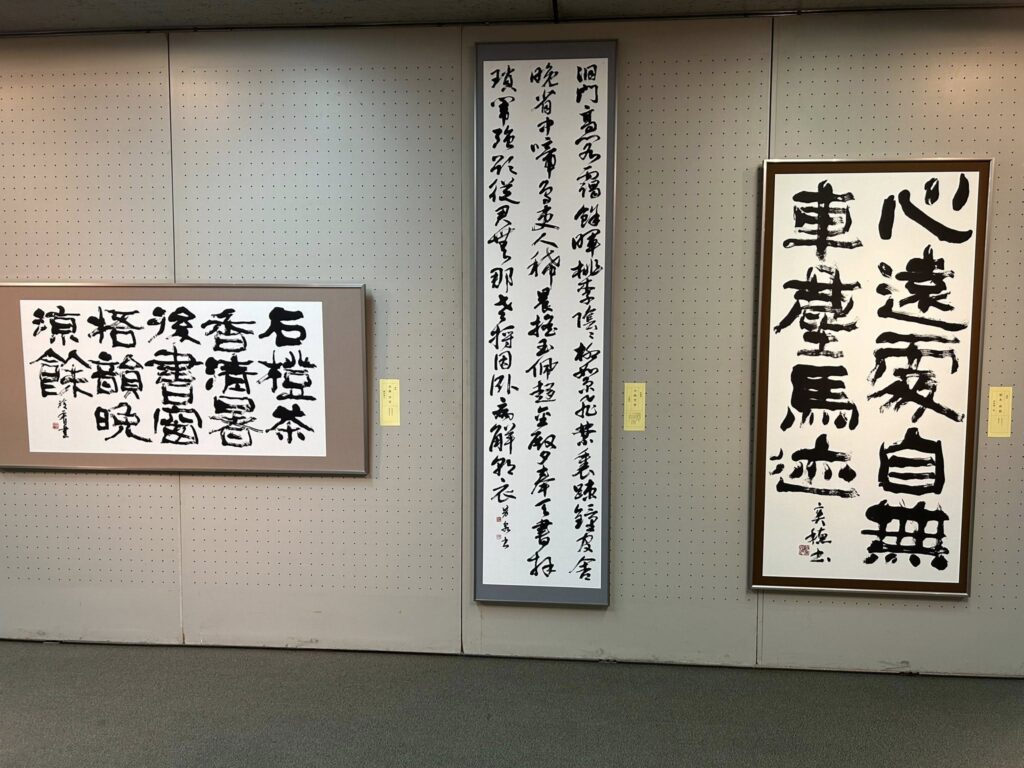 心遠處自無
車塵馬迹
洞門高閣靄餘暉桃李陰〻柳絮飛禁裏疎鐘官舍
晩省中啼鳥吏人稀晨搖玉佩趨金殿夕奉天書拜
瑣闈強欲從君無那老將因臥病解朝衣
石橙茶
香清暑
後書窗
梧韻晩
涼餘